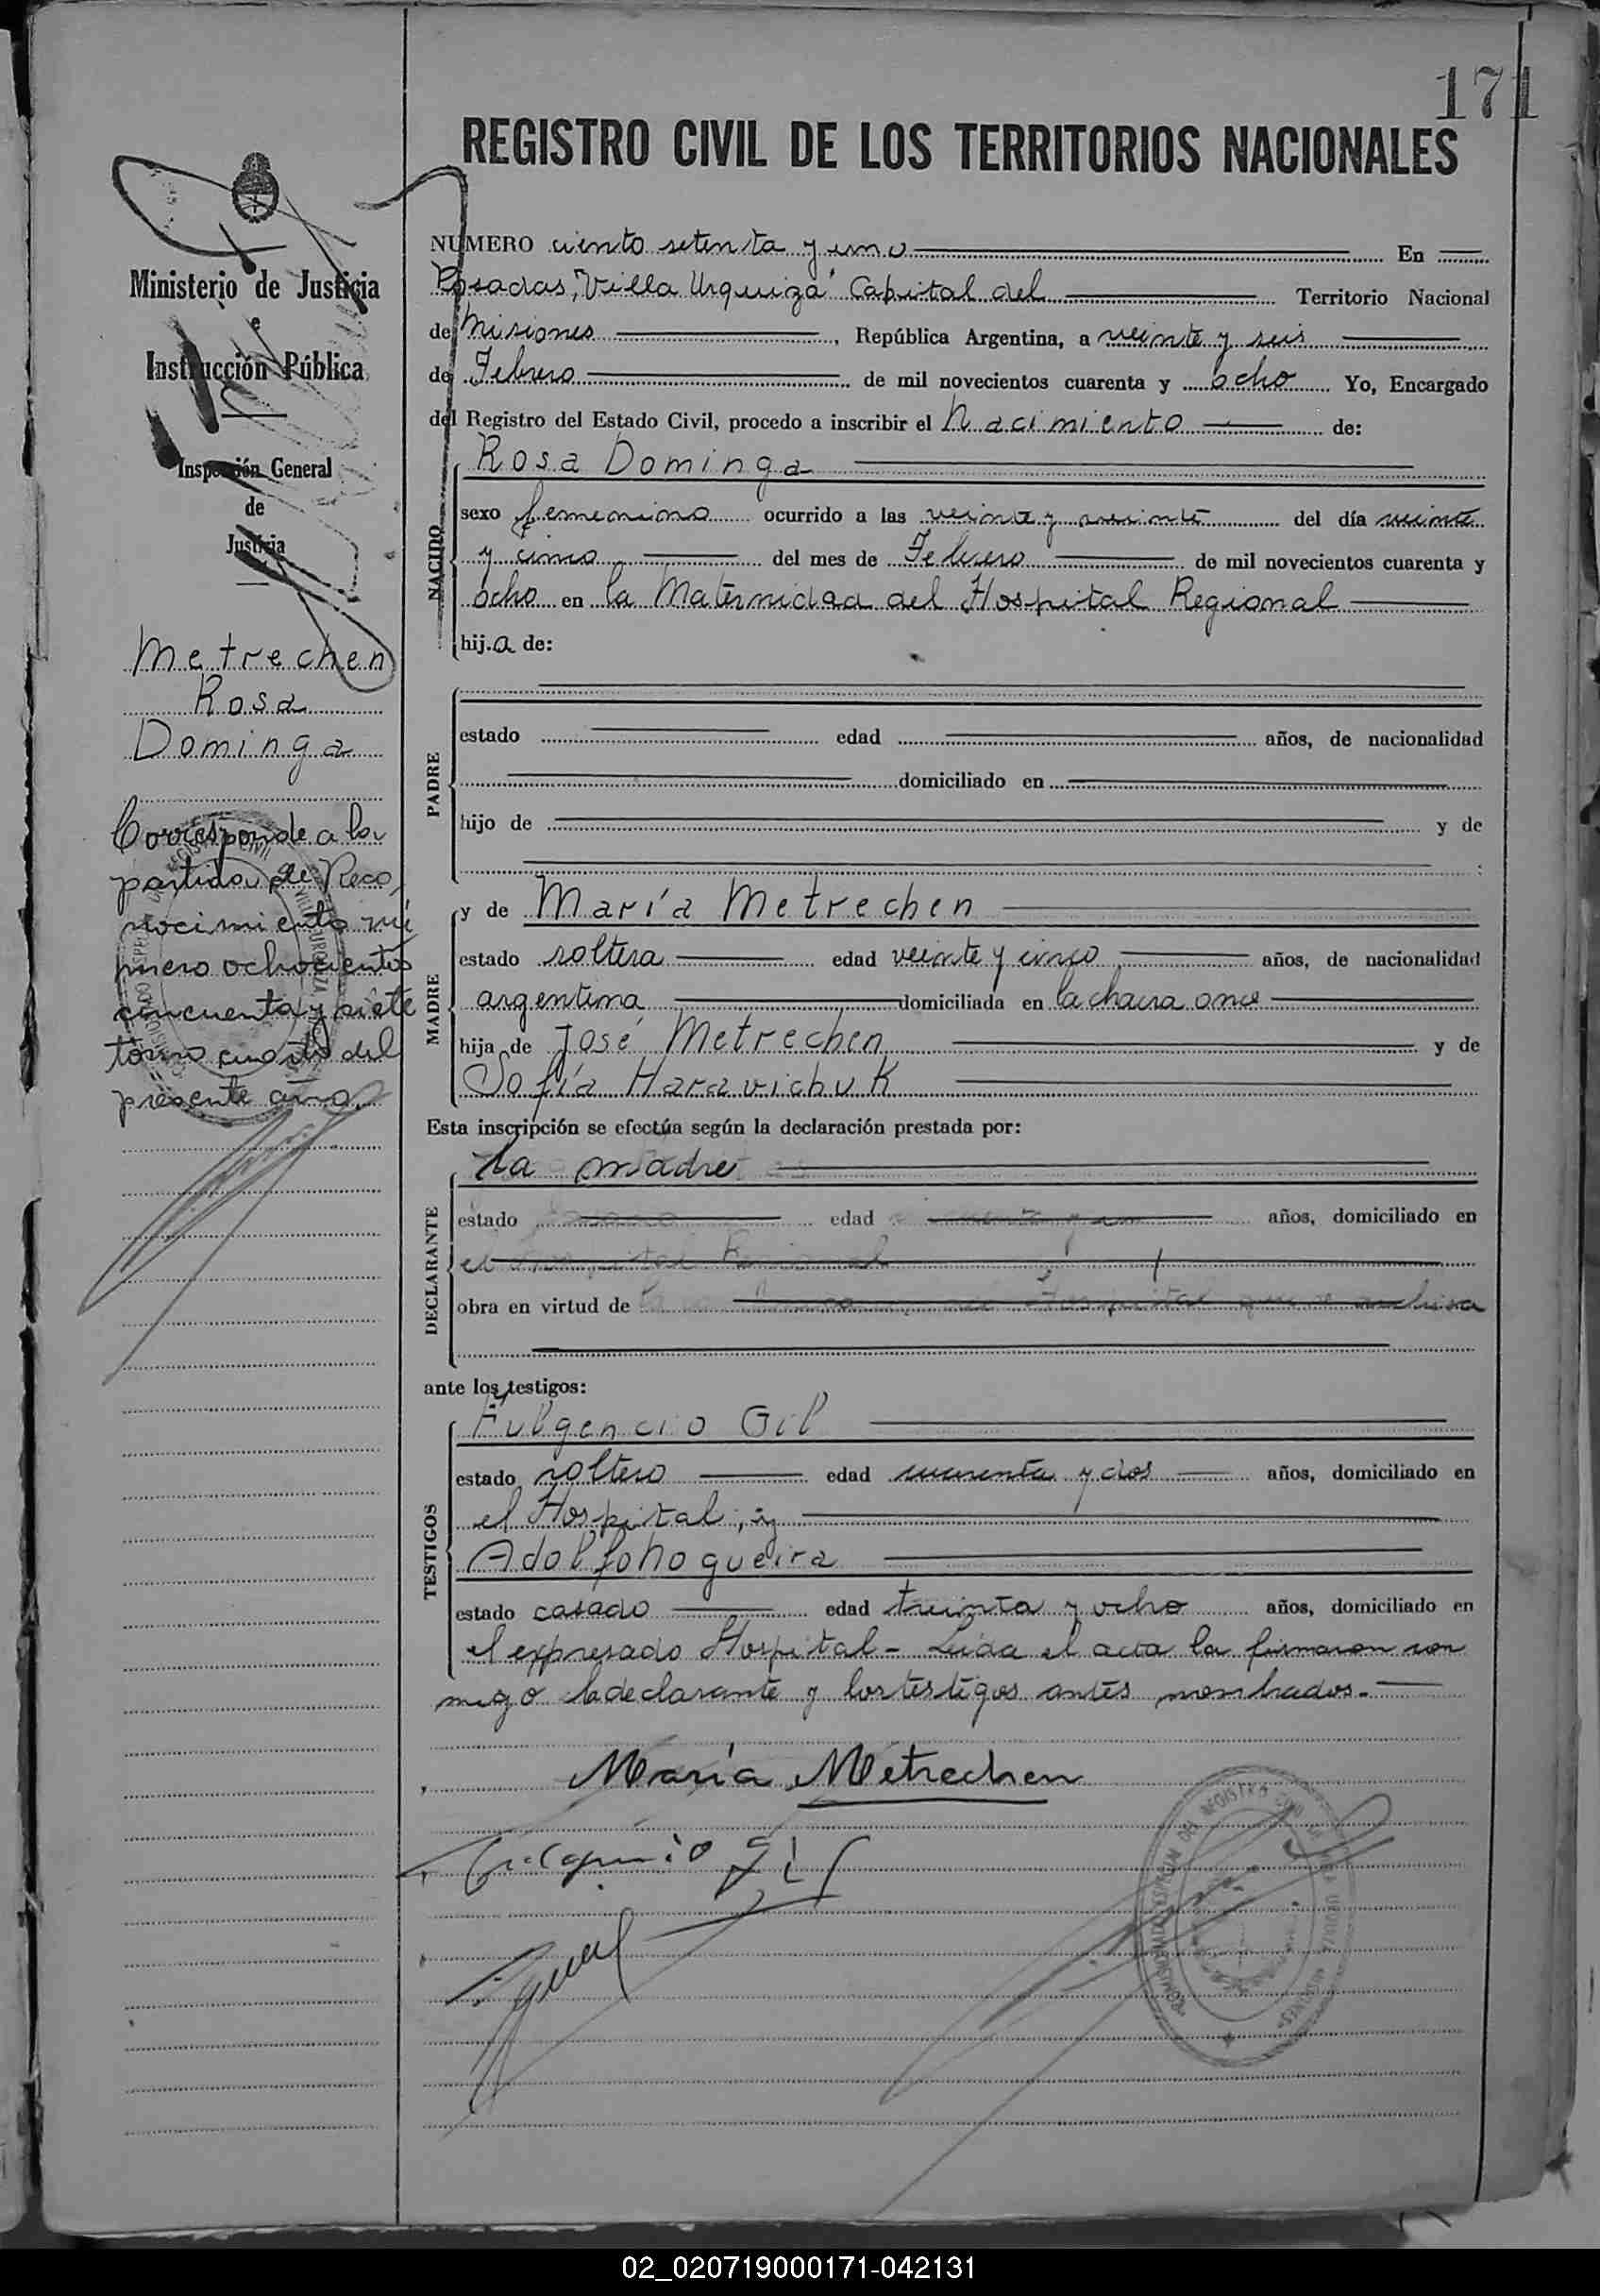 171
REGISTRO CIVIL DE LOS TERRITORIOS NACIONALES
Ministerio de Justicia
e
Instrucción Pública
Inspección General
de
Justicia
Metrechen
Rosa
Dominga
Corresponde a la
partida de Reco
nocimiento nú
mero ochocientos
cincuenta y siete
tomo cuarto del
presente año.
NUMERO ciento setenta y uno En
Posadas, "Villa Urquiza" Capital del Territorio Nacional
de Misiones, República Argentina, a veinte y seis
de Febrero de mil novecientos cuarenta y ocho Yo, Encargado
del Registro del Estado Civil, procedo a inscribir el Nacimiento de:
Rosa Dominga
NACIDO
sexo femenino ocurrido a las veinte y veinte del día veinte
y cinco del mes de Febrero de mil novecientos cuarenta y
ocho en la Maternidad del Hospital Regional
hij.a de:
PADRE
estado edad años, de nacionalidad
domiciliado en
hijo de y de
y de María Metrechen
MADRE
estado soltera edad veinte y cinco años, de nacionalidad
argentina domiciliada en la chacra once
hija de José Metrechen y de
Sofía Haravichuk
Esta inscripción se efectúa según la declaración prestada por:
La madre
DECLARANTE
estado edad años, domiciliado en
el Hospital Regional
obra en virtud de Hospital que se archiva
ante los testigos:
Fulgencio Gil
TESTIGOS
estado soltero edad cuarenta y dos años, domiciliado en
el Hospital, y
Adolfo Nogueira
estado casado edad treinta y ocho años, domiciliado en
el expresado Hospital - Leida el acta la firmaron con
migo la declarante y los testigos antes nombrados.
María Metrechen
02_020719000171-042131